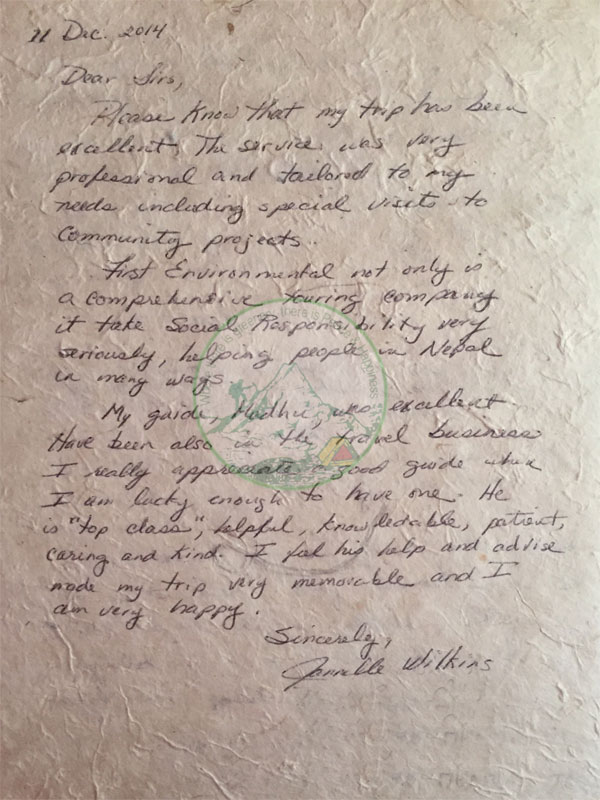 11 Dec. 2014
Dear Sirs,
Please know that my trip has been
excellent. The service was very
professional and tailored to my
needs including special visits to
community projects.
First Environmental not only is
a comprehensive touring company
it take Social Responsibility very
seriously, helping people in Nepal
in many ways.
My guide, Madhu, was excellent
Have been also in the travel business
I really appreciate a good guide when
I am lucky enough to have one. He
is "top class", helpful, knowledable, patient,
caring and kind. I feel his help and advise
made my trip very memorable and I
am very happy.
Sincerely,
Wilkins
there is Happiness